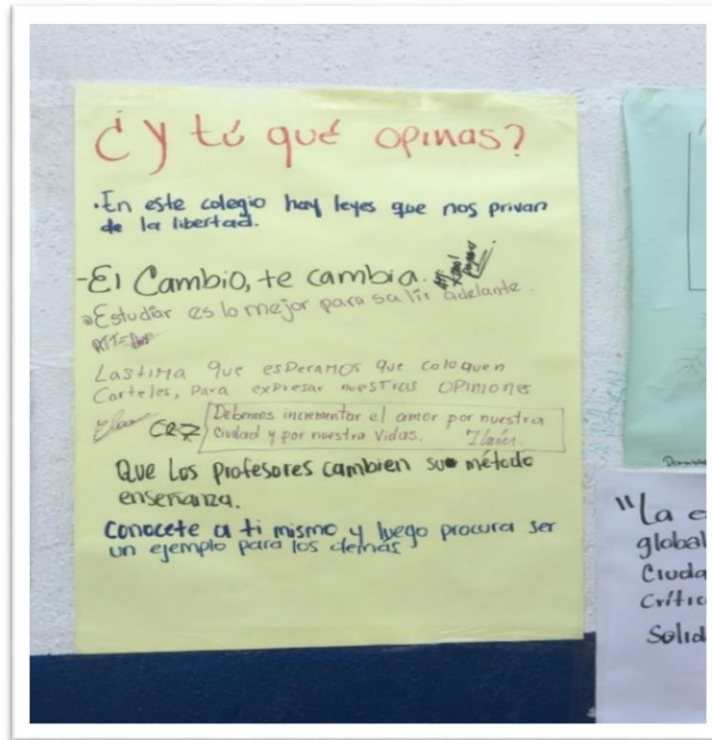 ¿y tú qué opinas?
.En este colegio hay leyes que nos privan
de la libertad.
-El Cambio, te cambia.
Estudiar es lo mejor para salir adelante.
Lastima que esperamos que coloquen
Carteles, para expresar nuestras opiniones
CR7
Debemos incrementar el amor por nuestra
Ciudad y por nuestra Vidas.
Que Los profesores cambien su método
enseñanza.
Conocete a ti mismo y luego procura ser
un ejemplo para los demás
"La e
global
Ciuda
Crític
Solid